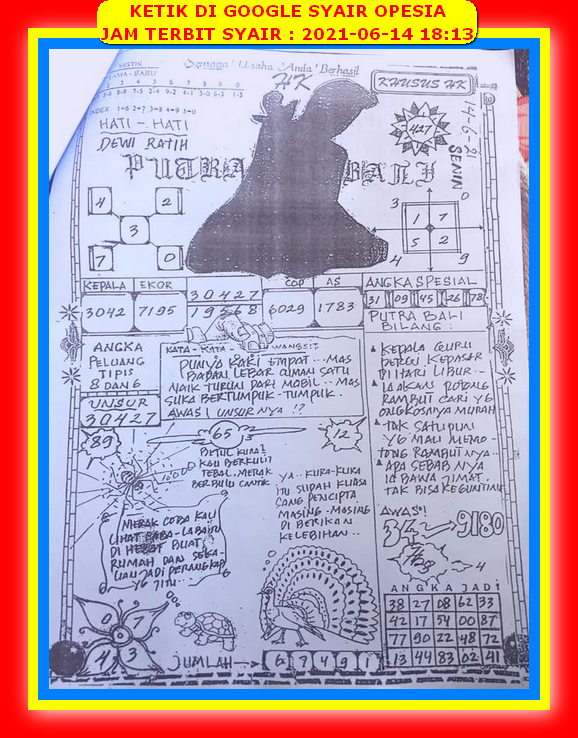 KETIK DI GOOGLE SYAIR OPESIA
JAM TERBIT SYAIR : 2021-06-14 18:13
MISTIK
LAMA - BARU
Semoga Usaha Anda Berhasil
HK
KHUSUS HK
INDEX 1=6 2=7 3=8 4=9 5=0
HATI - HATI
DEWI RATIH
427
14-6-21
SENIN
PUTRA BALI
4 2
3
7 0
3 0
1 7
5 2
4 9
KEPALA EKOR
3042 7195
30427
19568
COP AS
6029 1783
ANGKA SPESIAL
31 09 45 26 78
PUTRA BALI
BILANG :
ANGKA
PELUANG
TIPIS
8 DAN 6
UNSUR
30427
KATA - KATA - WANGSIT
PUNYA KAKI EMPAT ... MAS
BADAN LEBAR
NAIK TURUN DARI MOBIL ... MAS
SUKA BERTUMPUK - TUMPUK.
AWAS 1 UNSUR NYA !?
KEPALA GURU
KEPASAR
DI HARI LIBUR ..
IA AKAN POTONG
RAMBUT CARI YG
ONGKOSNYA MURAH
TAK SATUPUN
YG MAU MEMO -
TONG RAMBUTNYA ..
APA SEBABNYA
IA BAWA JIMAT.
TAK BISA KEGUNTING
89
65
12
BETUL KURA2
KAU BERKULIT
TEBAL, MERAK
BERBULU CANTIK
YA .. KURA-KURA
ITU SUDAH KUASA
SANG PENCIPTA
MASING - MASING
DI BERIKAN
KELEBIHAN ...
MERAK COBA KAU
LIHAT LABA-LABA ITU
DI HEBAT BUAT
RUMAH DAN SEKA-
LIAN JADI PERANGKAP
YG JITU
AWAS !
34 9180
4
ANGKA JADI
38 27 08 62 33
42 17 54 00 87
77 90 22 48 72
13 44 83 02 41
0 7
4 3
JUMLAH 6 7 4 9 1